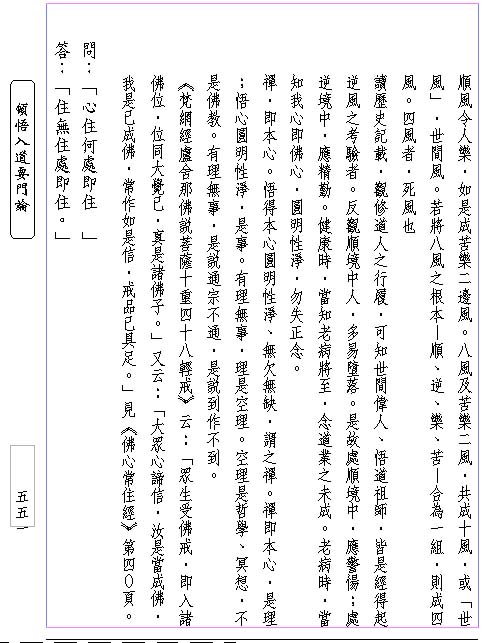 順風令人樂，如是成苦樂二邊風。八風及苦樂二風，共成十風，或「世
風」，世間風。若將八風之根本—順、逆、樂、苦—合為一組，則成四
風。四風者，死風也
讀歷史記載，觀修道人之行履，可知世間偉人、悟道祖師，皆是經得起
逆風之考驗者。反觀順境中人，多易墮落。是故處順境中，應警惕；處
逆境中，應精勤。健康時，當知老病將至，念道業之未成。老病時，當
知我心即佛心，圓明性淨，勿失正念。
禪，即本心。悟得本心圓明性淨、無欠無缺，謂之禪。禪即本心，是理
；悟心圓明性淨，是事。有理無事，理是空理。空理是哲學、冥想，不
是佛教。有理無事，是說通宗不通，是說到作不到。
《梵網經盧舍那佛說菩薩十重四十八輕戒》云：「眾生受佛戒，即入諸
佛位，位同大覺已，真是諸佛子。」又云：「大眾心諦信，汝是當成佛，
我是已成佛，常作如是信，戒品已具足。」見《佛心常住經》第四０頁。
問：「心住何處即住　」
答：「住無住處即住。」
頓悟入道要門論
五五一